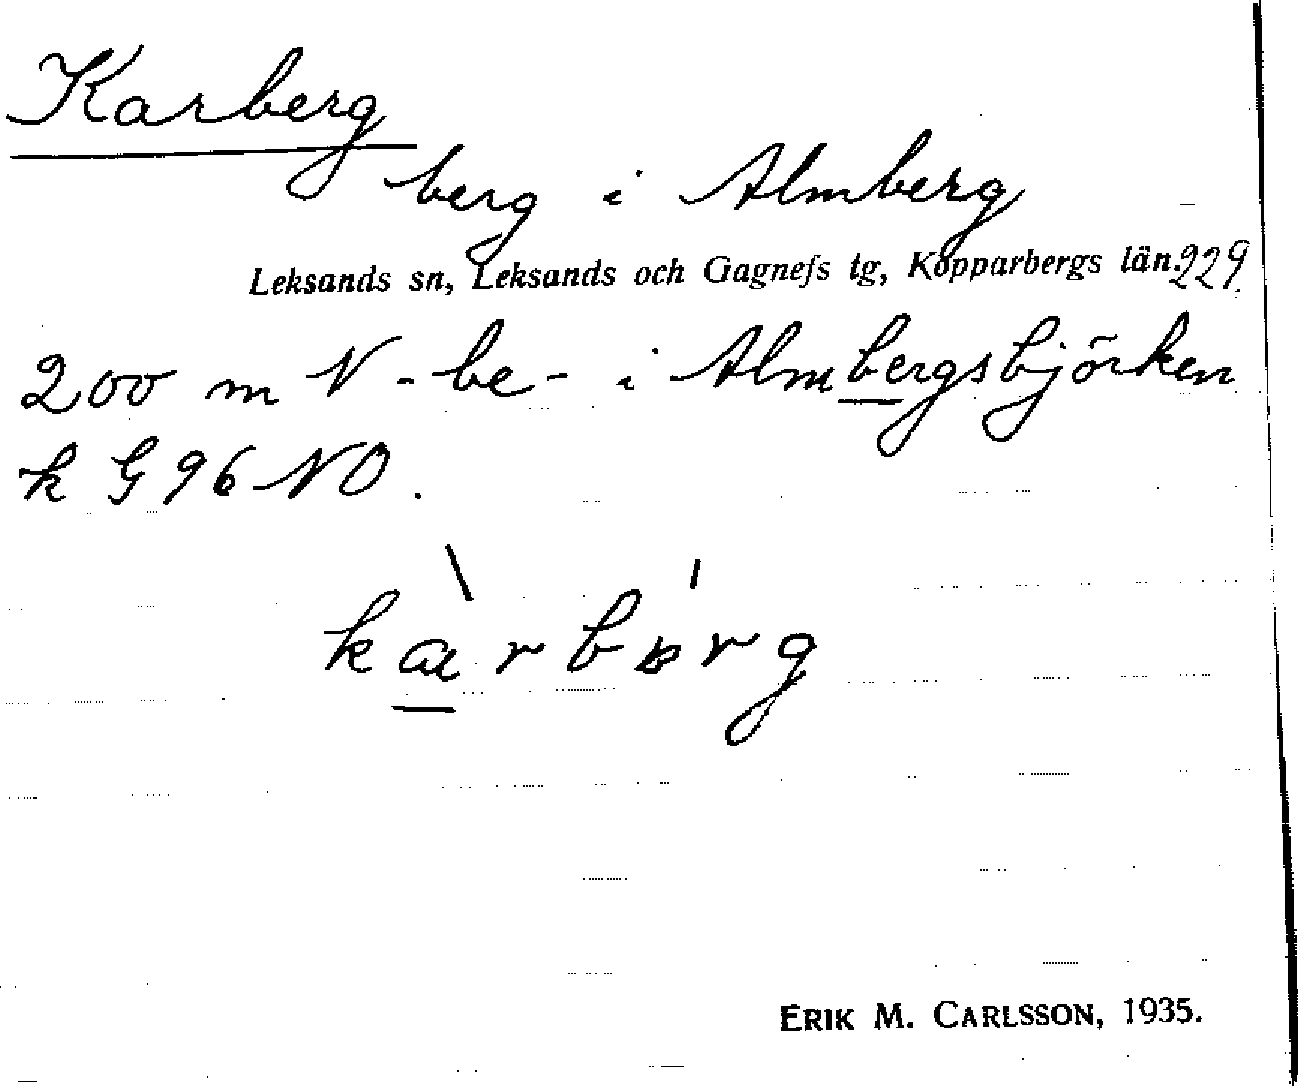 Karberg
berg i Almberg
Leksands sn, Leksands och Gagnefs tg, Kopparbergs län. 229
200 m N -be- i Almbergsbjörken
k G 96 NO.